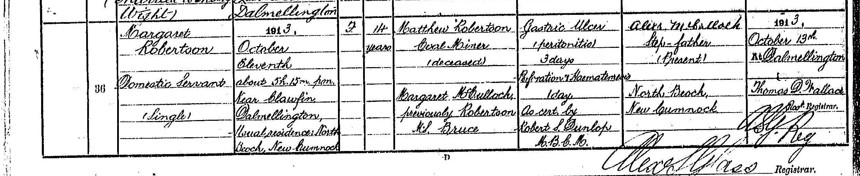 Wight)
Dalmellington
Margaret
Robertson
Domestic Servant
(Single)
86
1913,
October
Eleventh
about 5h. 15m. p.m.
Near Clawfin
Dalmellington,
Usual residence, North
Beoch, New Cumnock
F
14
years
Matthew Robertson
Coal Miner
(deceased)
Margaret McCulloch,
previously Robertson
M.S. Bruce
Gastric Ulcer
(peritonitis)
3 days
1 day
As cert. by
Robert S. Dunlop
M.B.C.M.
Alexr McCulloch
Step-father
(Present)
North Beoch,
New Cumnock
1913,
October 13th
At Dalmellington
Thomas D. Wallace
Asst. Registrar.
Reg
D
Registrar.